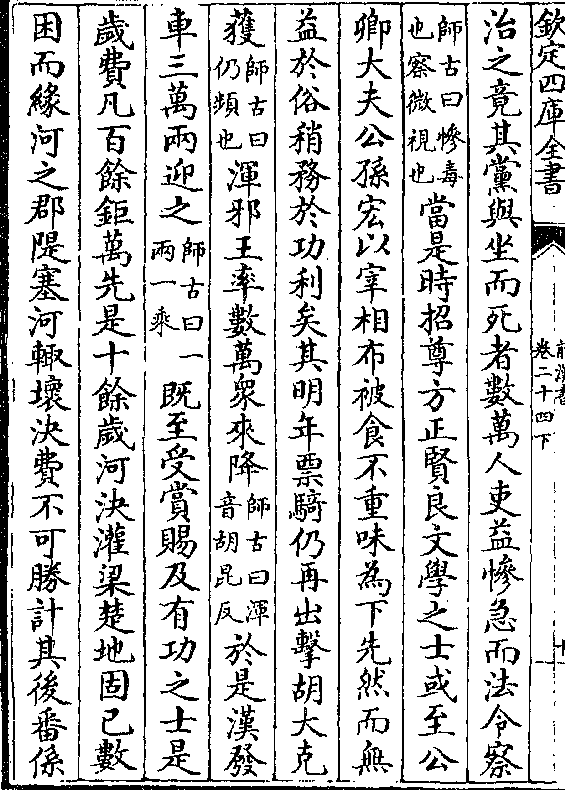 欽定四庫全書
前漢書
卷二十四下
十一
治之竟其黨與坐而死者數萬人吏益慘急而法令察
師古曰慘毒
也察微視也
當是時招尊方正賢良文學之士或至公
卿大夫公孫宏以宰相布被食不重味為下先然而無
益於俗稍務於功利矣其明年票騎仍再出擊胡大克
獲
師古曰
仍頻也
渾邪王率數萬衆來降
師古曰渾
音胡昆反
於是漢發
車三萬兩迎之
師古曰一
兩一乘
既至受賞賜及有功之士是
歲費凡百餘鉅萬先是十餘歲河決灌梁楚地固已數
困而緣河之郡隄塞河輙壞決費不可勝計其後番係